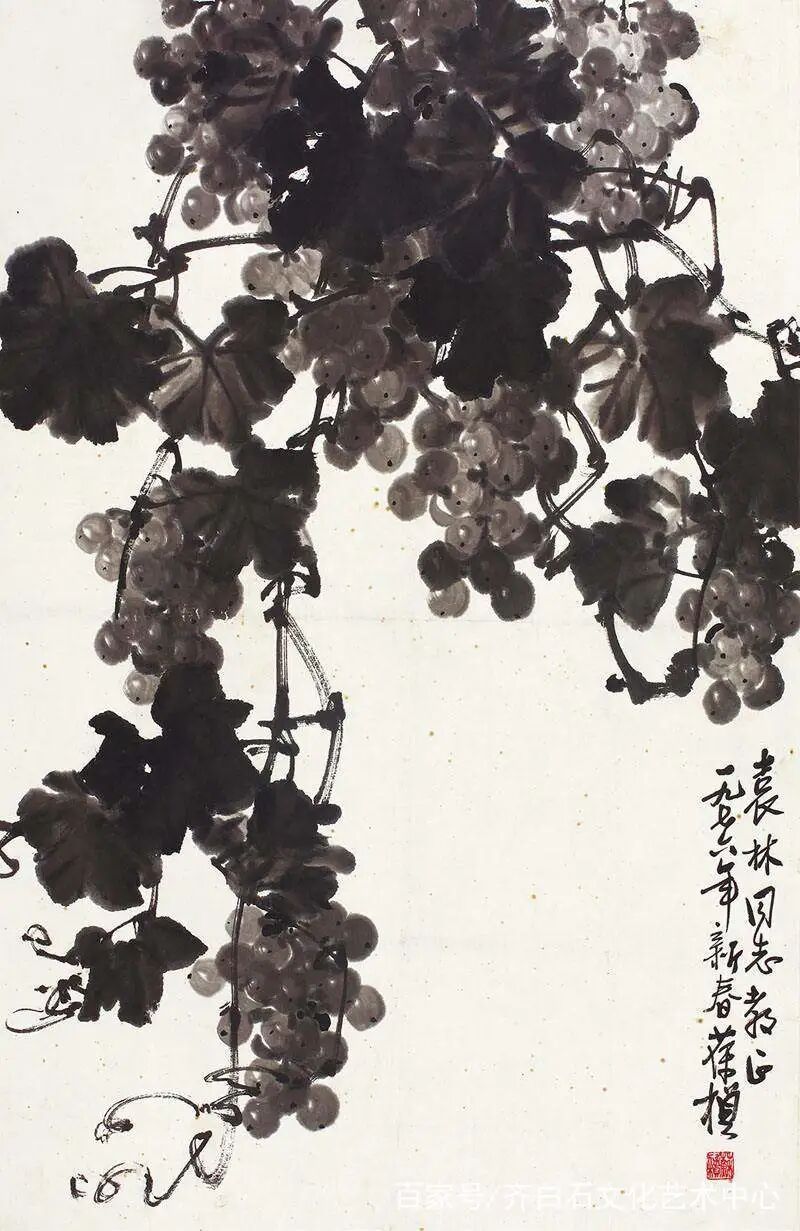 袁林同志教正
一九七六年新春葆楨
百家号/齐白石文化艺术中心